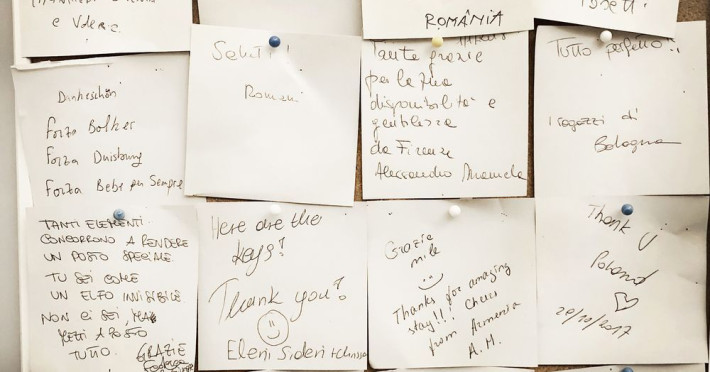 e Valerie
ROMÂNIA
Saluti!
Romani
Tante grazie
per la tua
disponibilità e
gentilezza
da Firenze
Alessandro Manuela
Tutto perfetto!!
I ragazzi di
Bologna
Dankeschön
Forza Bolker
Forza Duisburg
Forza Bebe per Sempre
TANTI ELEMENTI
CONCORRONO A RENDERE
UN POSTO SPECIALE
TU SEI COME
UN ELFO INVISIBILE
NON CI SEI MA
METTI A POSTO
TUTTO. GRAZIE
Here are the
keys!
Thank you!
Eleni Sideri
Grazie
mille
Thanks for amazing
stay!!! Cheers
from Armenia
A.M.
Thank
Poland
29/10/2017